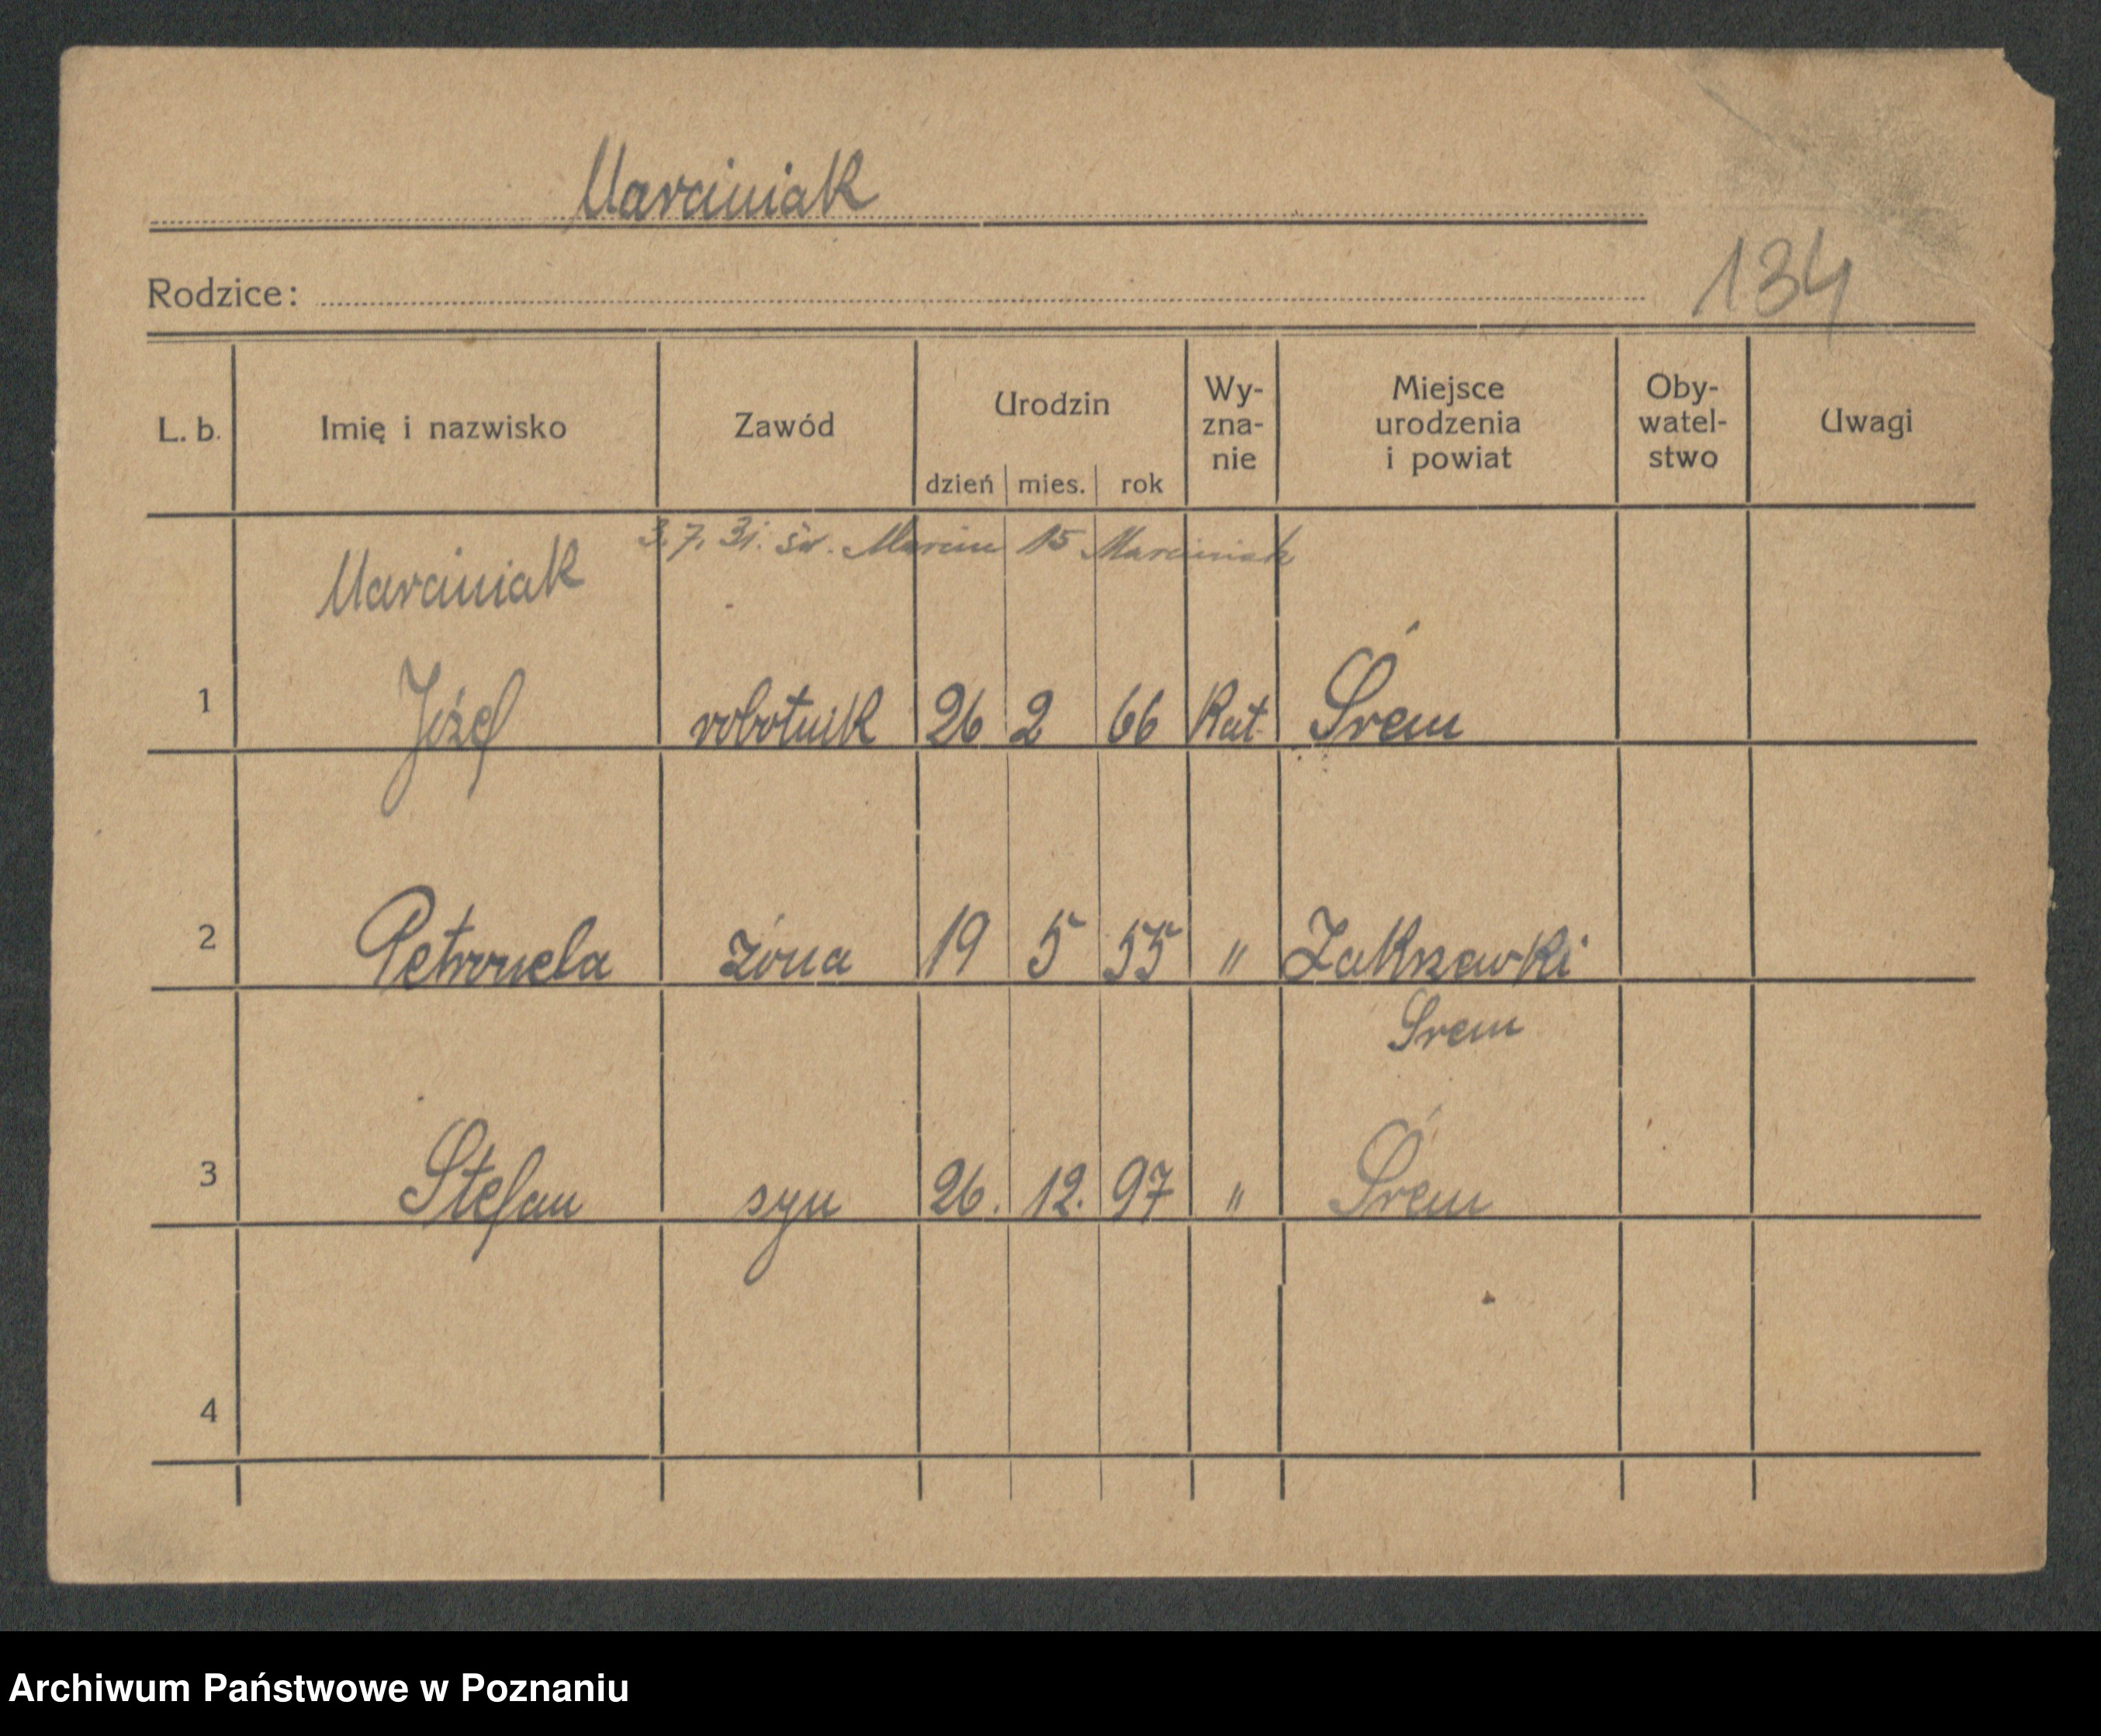 Marciniak
Rodzice:
134
L. b. Imię i nazwisko Zawód Urodzin dzień mies. rok Wy-zna-nie Miejsce urodzenia i powiat Oby-watel-stwo Uwagi
3. 7. 31. św. Marcin 15 Marciniak
Marciniak
1 Józef robotnik 26 2 66 Kat. Śrem
2 Petronela żona 19 5 55 " Zakrzewki
Srem
3 Stefan syn 26. 12. 97 " Śrem
4
Archiwum Państwowe w Poznaniu